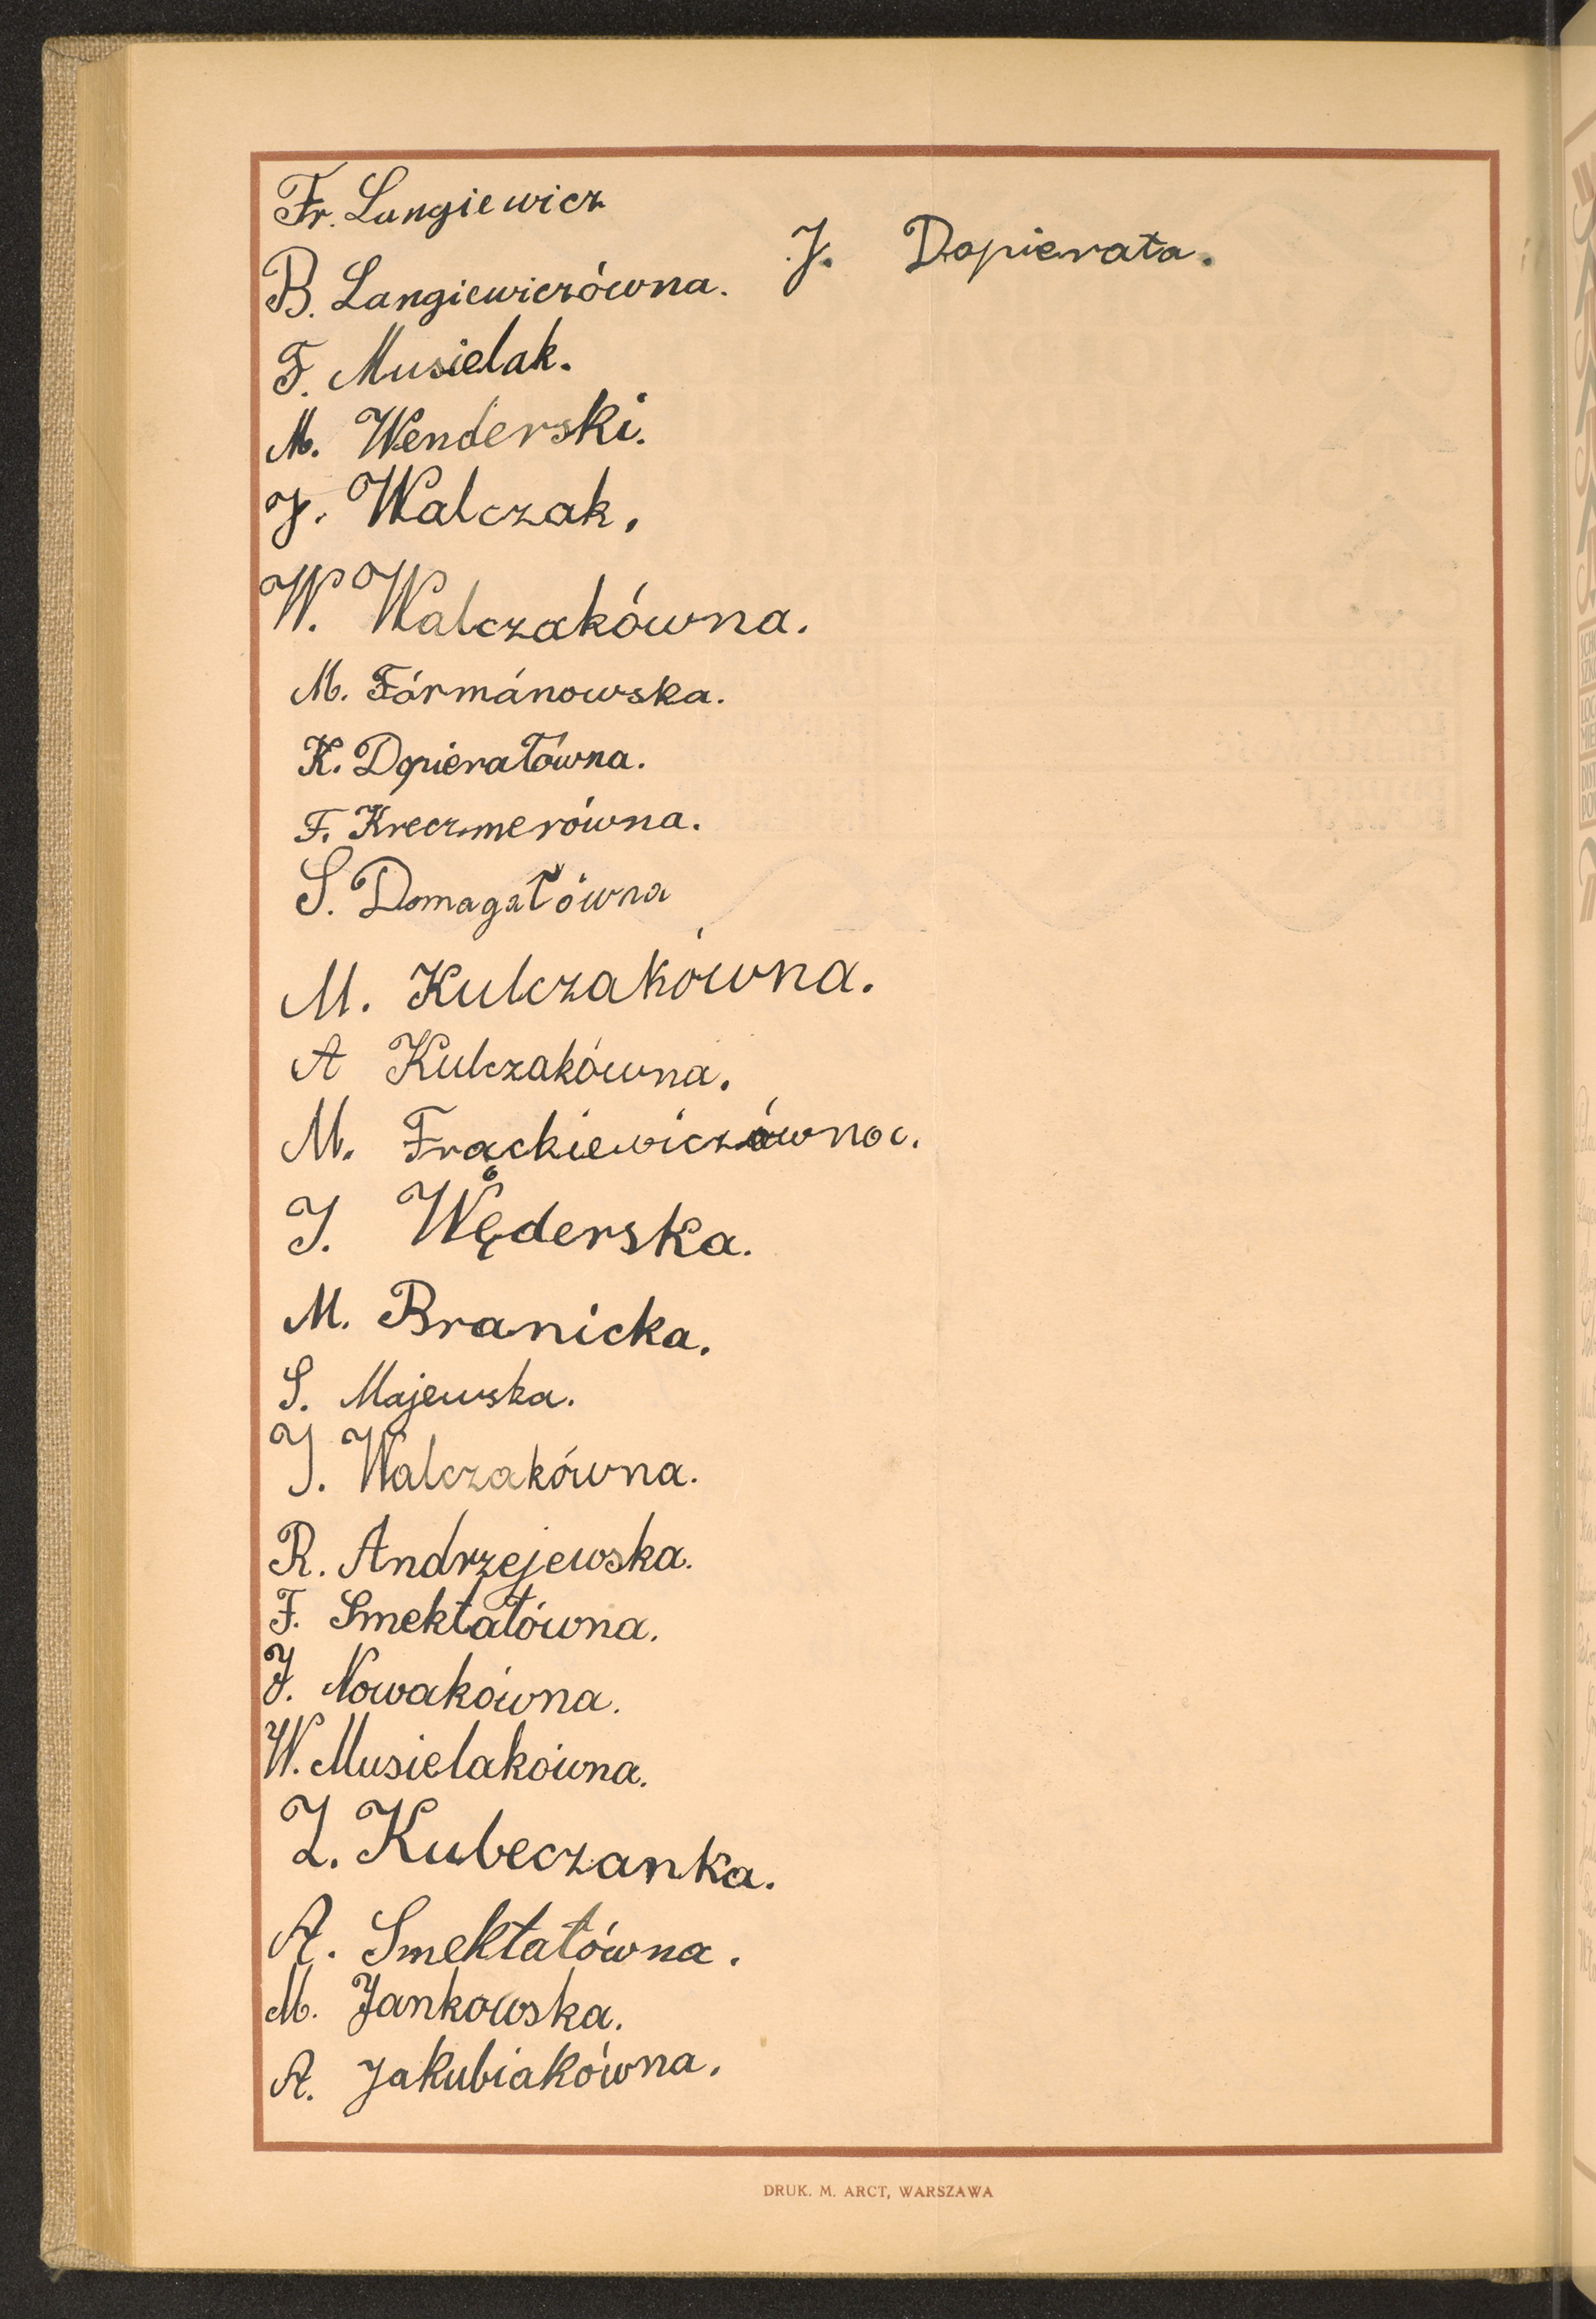 Fr. Langiewicz
B. Langiewiczówna.
J. Dopierała.
F. Musielak.
M. Wenderski.
J. Walczak.
W. Walczakówna.
M. Fórmánowska.
K. Dopierałówna.
F. Kreczmerówna.
S. Domagałówna
M. Kulczakówna.
A Kulczakówna.
M. Frąckiewiczówna.
J. Węderska.
M. Branicka.
S. Majewska.
J. Walczakówna.
R. Andrzejewska.
F. Smektałówna.
J. Nowakówna.
W. Musielakówna.
Z. Kubeczanka.
A. Smektałówna.
M. Jankowska.
A. Jakubiakówna.
DRUK. M. ARCT, WARSZAWA